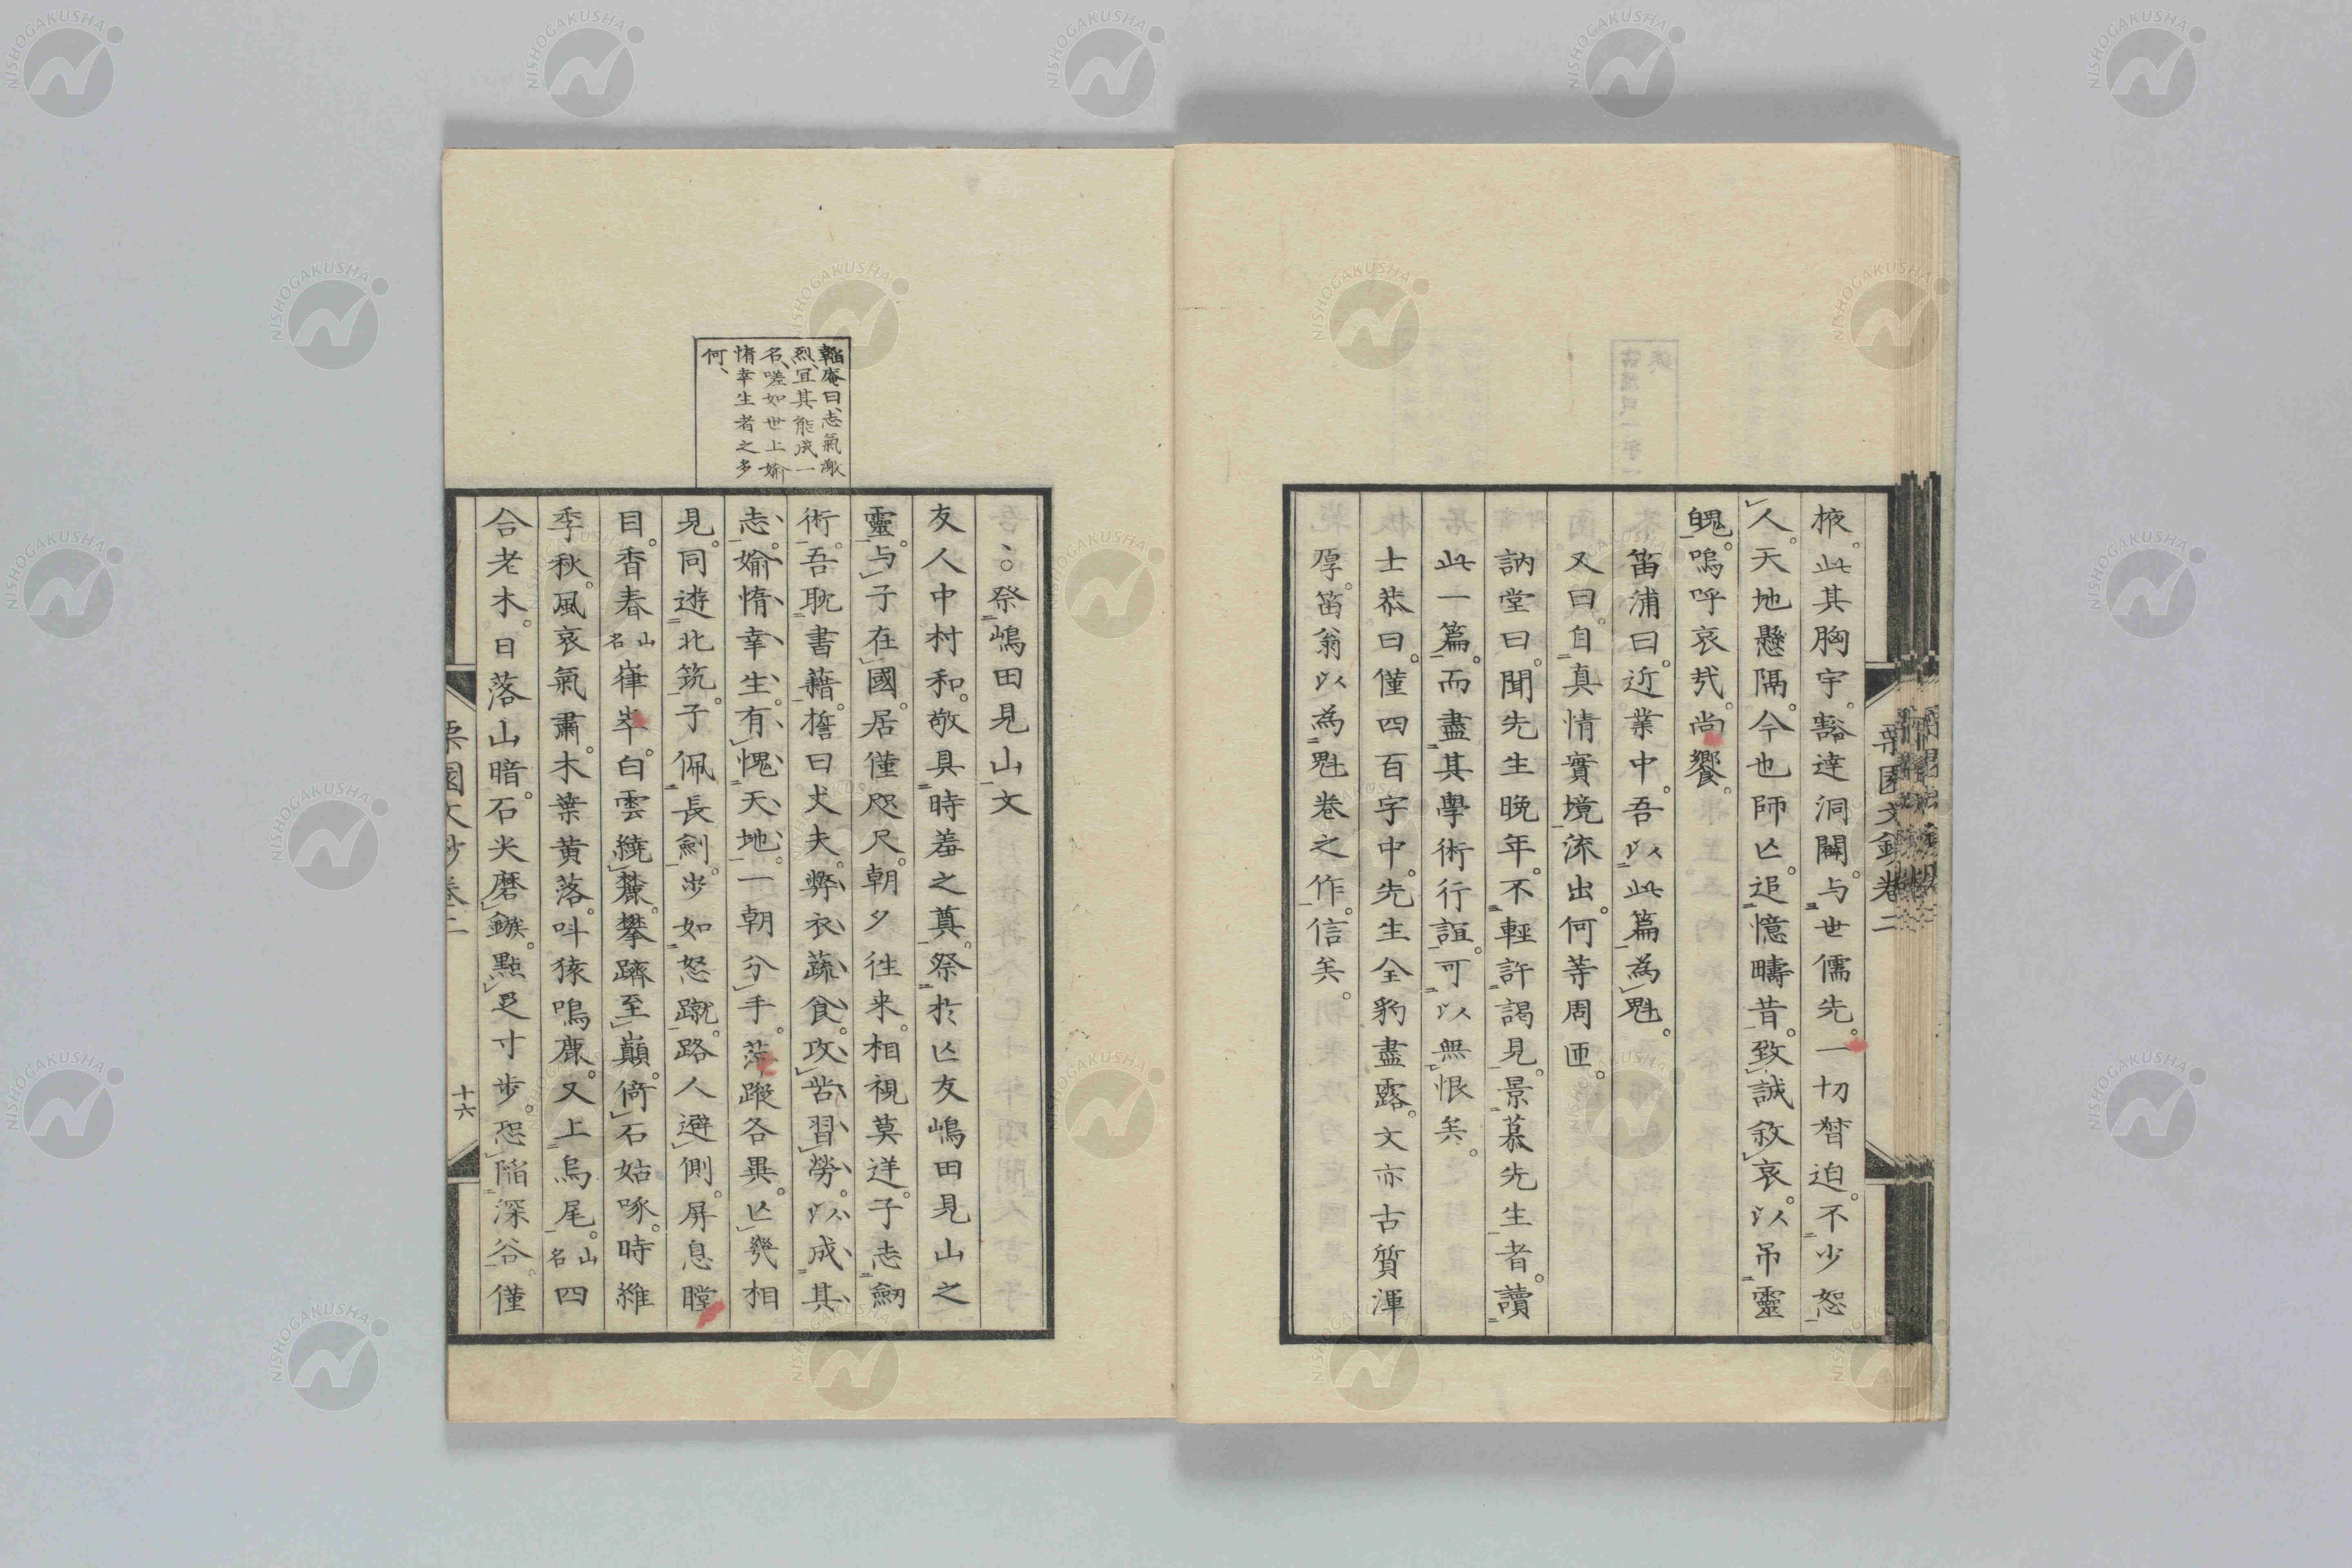 掖。此其胸宇。豁達洞闢。与世儒先。一切瞀迫。不少恕
人。天地懸隔。今也師亡。追憶疇昔。致誠敘哀。以吊靈
魄。嗚呼哀哉。尚饗。
笛浦曰。近業中。吾以此篇為魁。
又曰。自真情實境流出。何等周匝。
訥堂曰。聞先生晚年。不輕許謁見。景慕先生者。讀
此一篇。而盡其學術行誼。可以無恨矣。
士恭曰。僅四百字中。先生全豹盡露。文亦古質渾
厚。笛翁以為魁卷之作。信矣。
栗園文鈔 卷二
韜庵曰、志氣激
烈、宜其能成一
名、嗟如世上媮
惰幸生者之多
何、
祭嶋田見山文
友人中村和。敬具時羞之奠。祭於亡友嶋田見山之
靈。与子在國。居僅咫尺。朝夕往来。相視莫逆。子志劒
術。吾耽書籍。誓曰丈夫。弊衣蔬食。攻苦習勞。以成其
志。媮惰幸生。有愧天地。一朝分手。萍蹤各異。亡幾相
見。同遊北筑。子佩長劍。步如怒蹴。路人避側。屏息瞠
目。香春山名嵂崒。白雲繞麓。攀躋至巔。倚石姑啄。時維
季秋。風哀氣肅。木葉黃落。叫猿鳴鹿。又上烏尾。山名四
合老木。日落山暗。石尖磨鏃。點足寸步。恐陷深谷。僅
栗園文鈔 卷二
十六